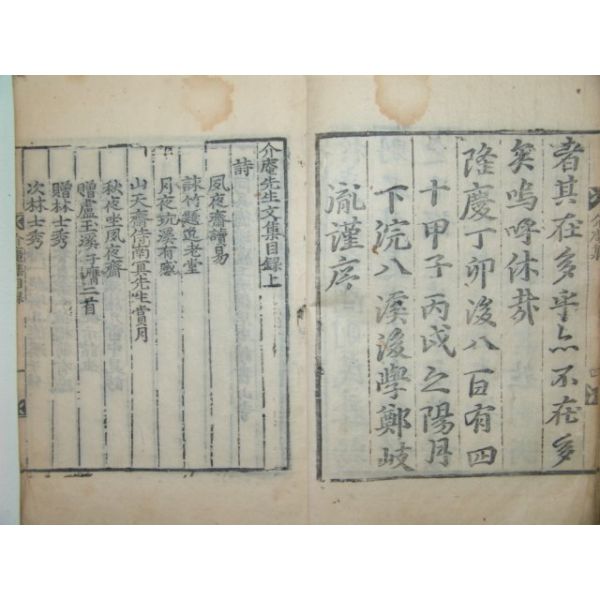 者其在多乎亦不在多
矣嗚呼休哉
隆慶丁卯後八百有四
十甲子丙戌之陽月
下浣八溪後學鄭岐
胤謹序
介庵先生文集目錄上
詩
夙夜齋讀易
竹題老堂
月夜玩溪有感
山天齋陪南冥先生賞月
秋夜坐夙夜齋
贈盧玉溪子膺二首
贈林士秀
次林士秀
介庵集目錄